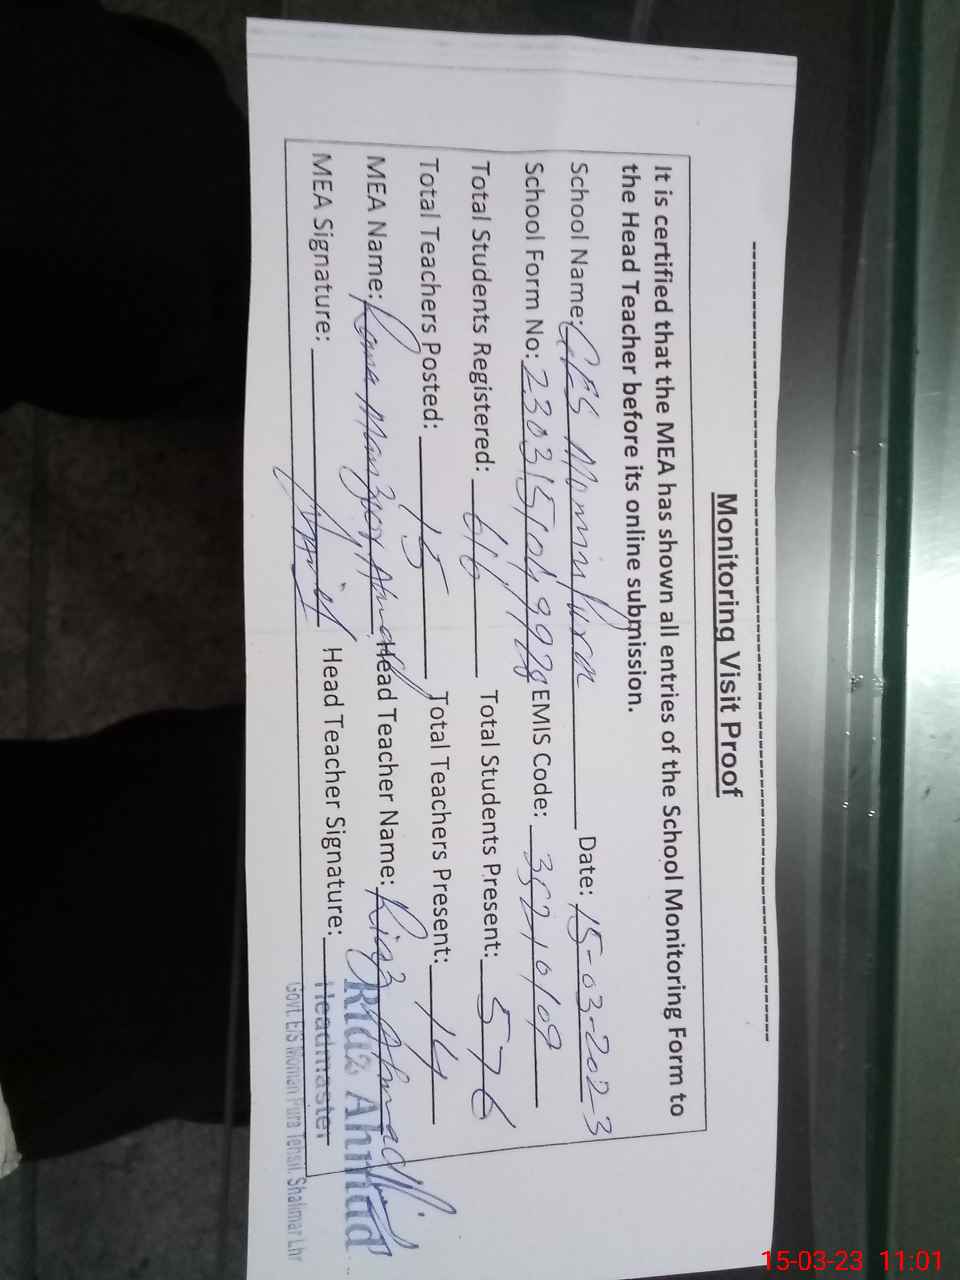 Monitoring Visit Proof
It is certified that the MEA has shown all entries of the School Monitoring Form to
the Head Teacher before its online submission.
School Name: GES Momin Pura Date: 15-03-2023
School Form No: EMIS Code: 35210109
Total Students Registered: 616 Total Students Present: 576
Total Teachers Posted: 15 Total Teachers Present: 14
MEA Name: Rana Manzoor Ahmad Head Teacher Name: Riaz Ahmad
MEA Signature: Head Teacher Signature:
Riaz Ahmad
Headmaster
Govt. E/S Moman Pura Tehsil. Shalimar Lhr
15-03-23 11:01